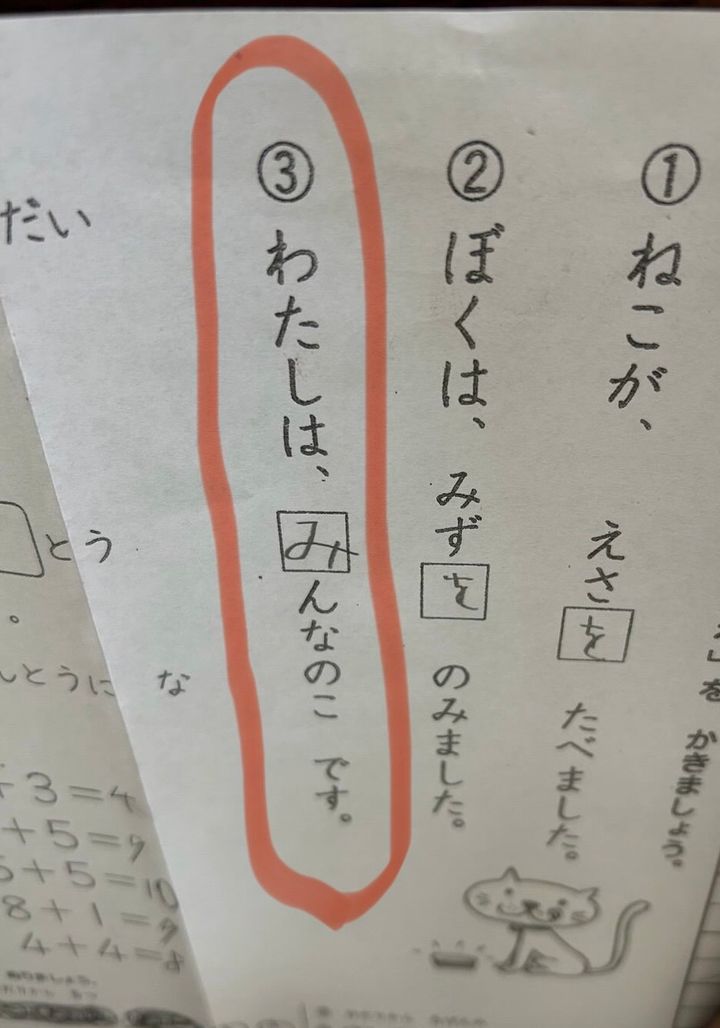 かきましょう。
① ねこが、 えさを たべました。
② ぼくは、 みずを のみました。
③ わたしは、 みんなのこ です。
だい
とう
。
とうに な
+3=4
+5=9
5+5=10
8+1=9
4+4=8